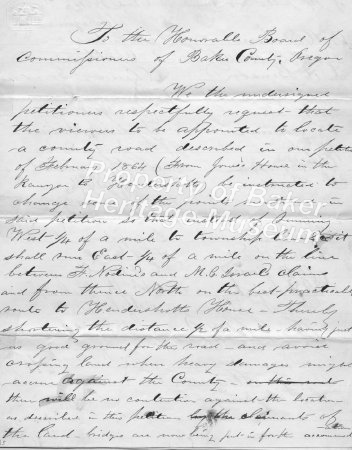 To the Honorable Board of
Commissioners of Baker County, Oregon
We the undersigned
petitioners respectfully request that
the viewers to be appointed to locate
a county road described in our petition
of February 1864 (From Jones House in the
Kanyon to be instructed to
change the route in
said petition so that instead of running
West 1/4 of a mile to township line it
shall run East 1/4 of a mile on the line
between F. and M. C. claims
and from thence North on the best practicable
route to Hendershotts House - Thereby
shortening the distance 1/2 of a mile - having just
as good ground for the road and avoid
crossing land where heavy damages might
accrue against the County -
there will be no contention against the location
as described in this petition by the claimants of
the land - bridges are now being put in forth
Property of Baker
Heritage Museum